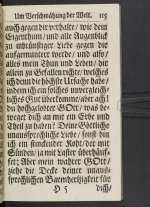 Um Verschmähung der Welt. 115
auch gegen dir verhalte / wie dein
Eigenthum / und alle Augenblick
zu inbrünstiger Liebe gegen dir
aufgemuntert werde / und also
alles mein Thun und Leben / dir
allein zu Gefallen richte / welches
ich dann die höchste Ursache habe /
indem ich ein solches unvergleich-
liches Gut überkomme / aber ach!
du hochgelobter GOtt / was be-
weget dich an mir ein Erbe und
Theil zu haben? Deine Göttliche
unaussprechliche Liebe / sonst bin
ich ein stinckender Koht / der mit
Sünden / ja mit Laster überhäuf-
fet; Aber mein wahrer GOtt /
ziehe die Decke deiner unaus-
sprechlichen Barmhertzigkeit für
H 5 dich /